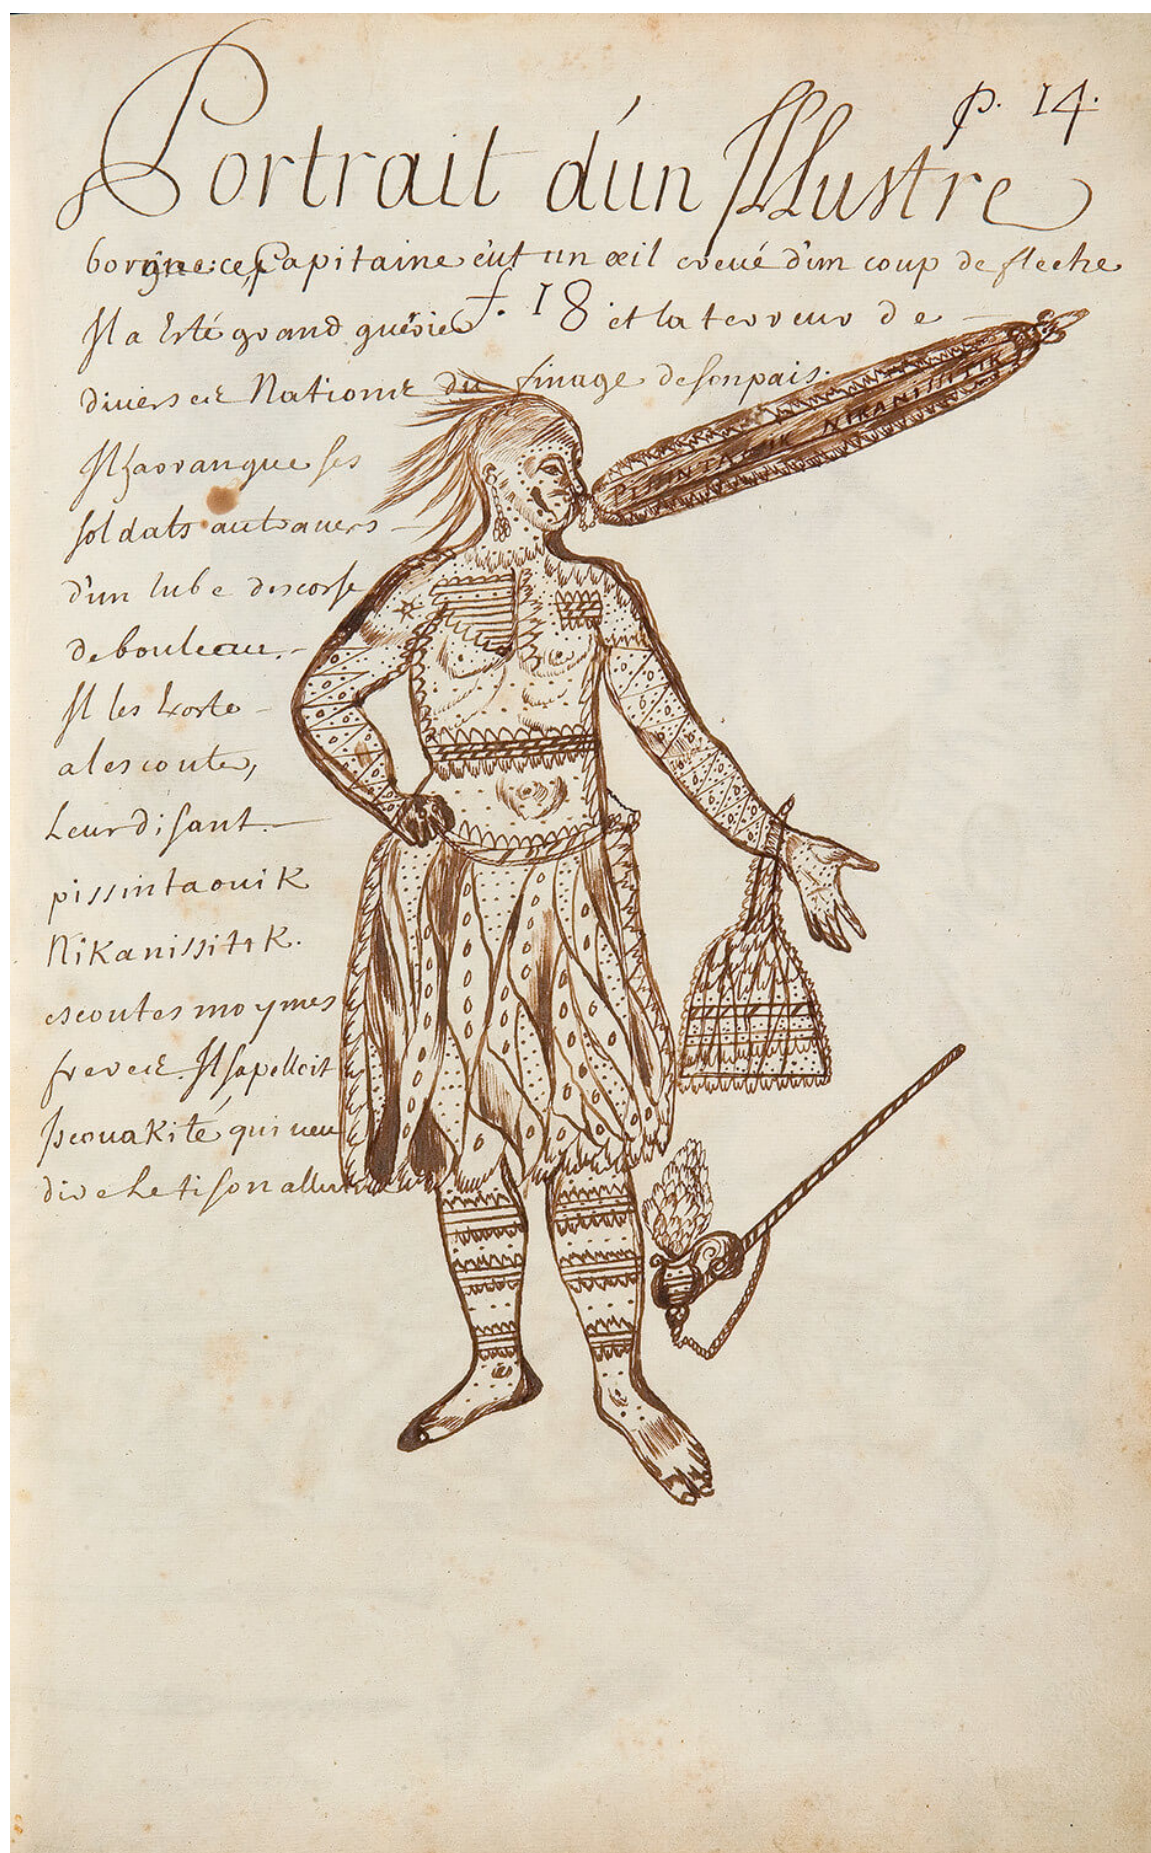 p. 14.
Portrait d'un Illustre
borgne: ce Capitaine éut un œil creué d'un coup de fleche
Il a Esté grand guérier f. 18 et la terreur de
diverses Nations du finage de son pais.
Il harangue ses
soldats autrauers
d'un tube descorse
de bouleau.
Il les Exorte
alescouter,
Leur disant.
pissintaouik
Nikanissitik.
escoutes moy mes
freres. Il sapelloit
Iscouakité qui ueu
dire Le tison allumé
PISSINTAOUIK NIKANISSITIK